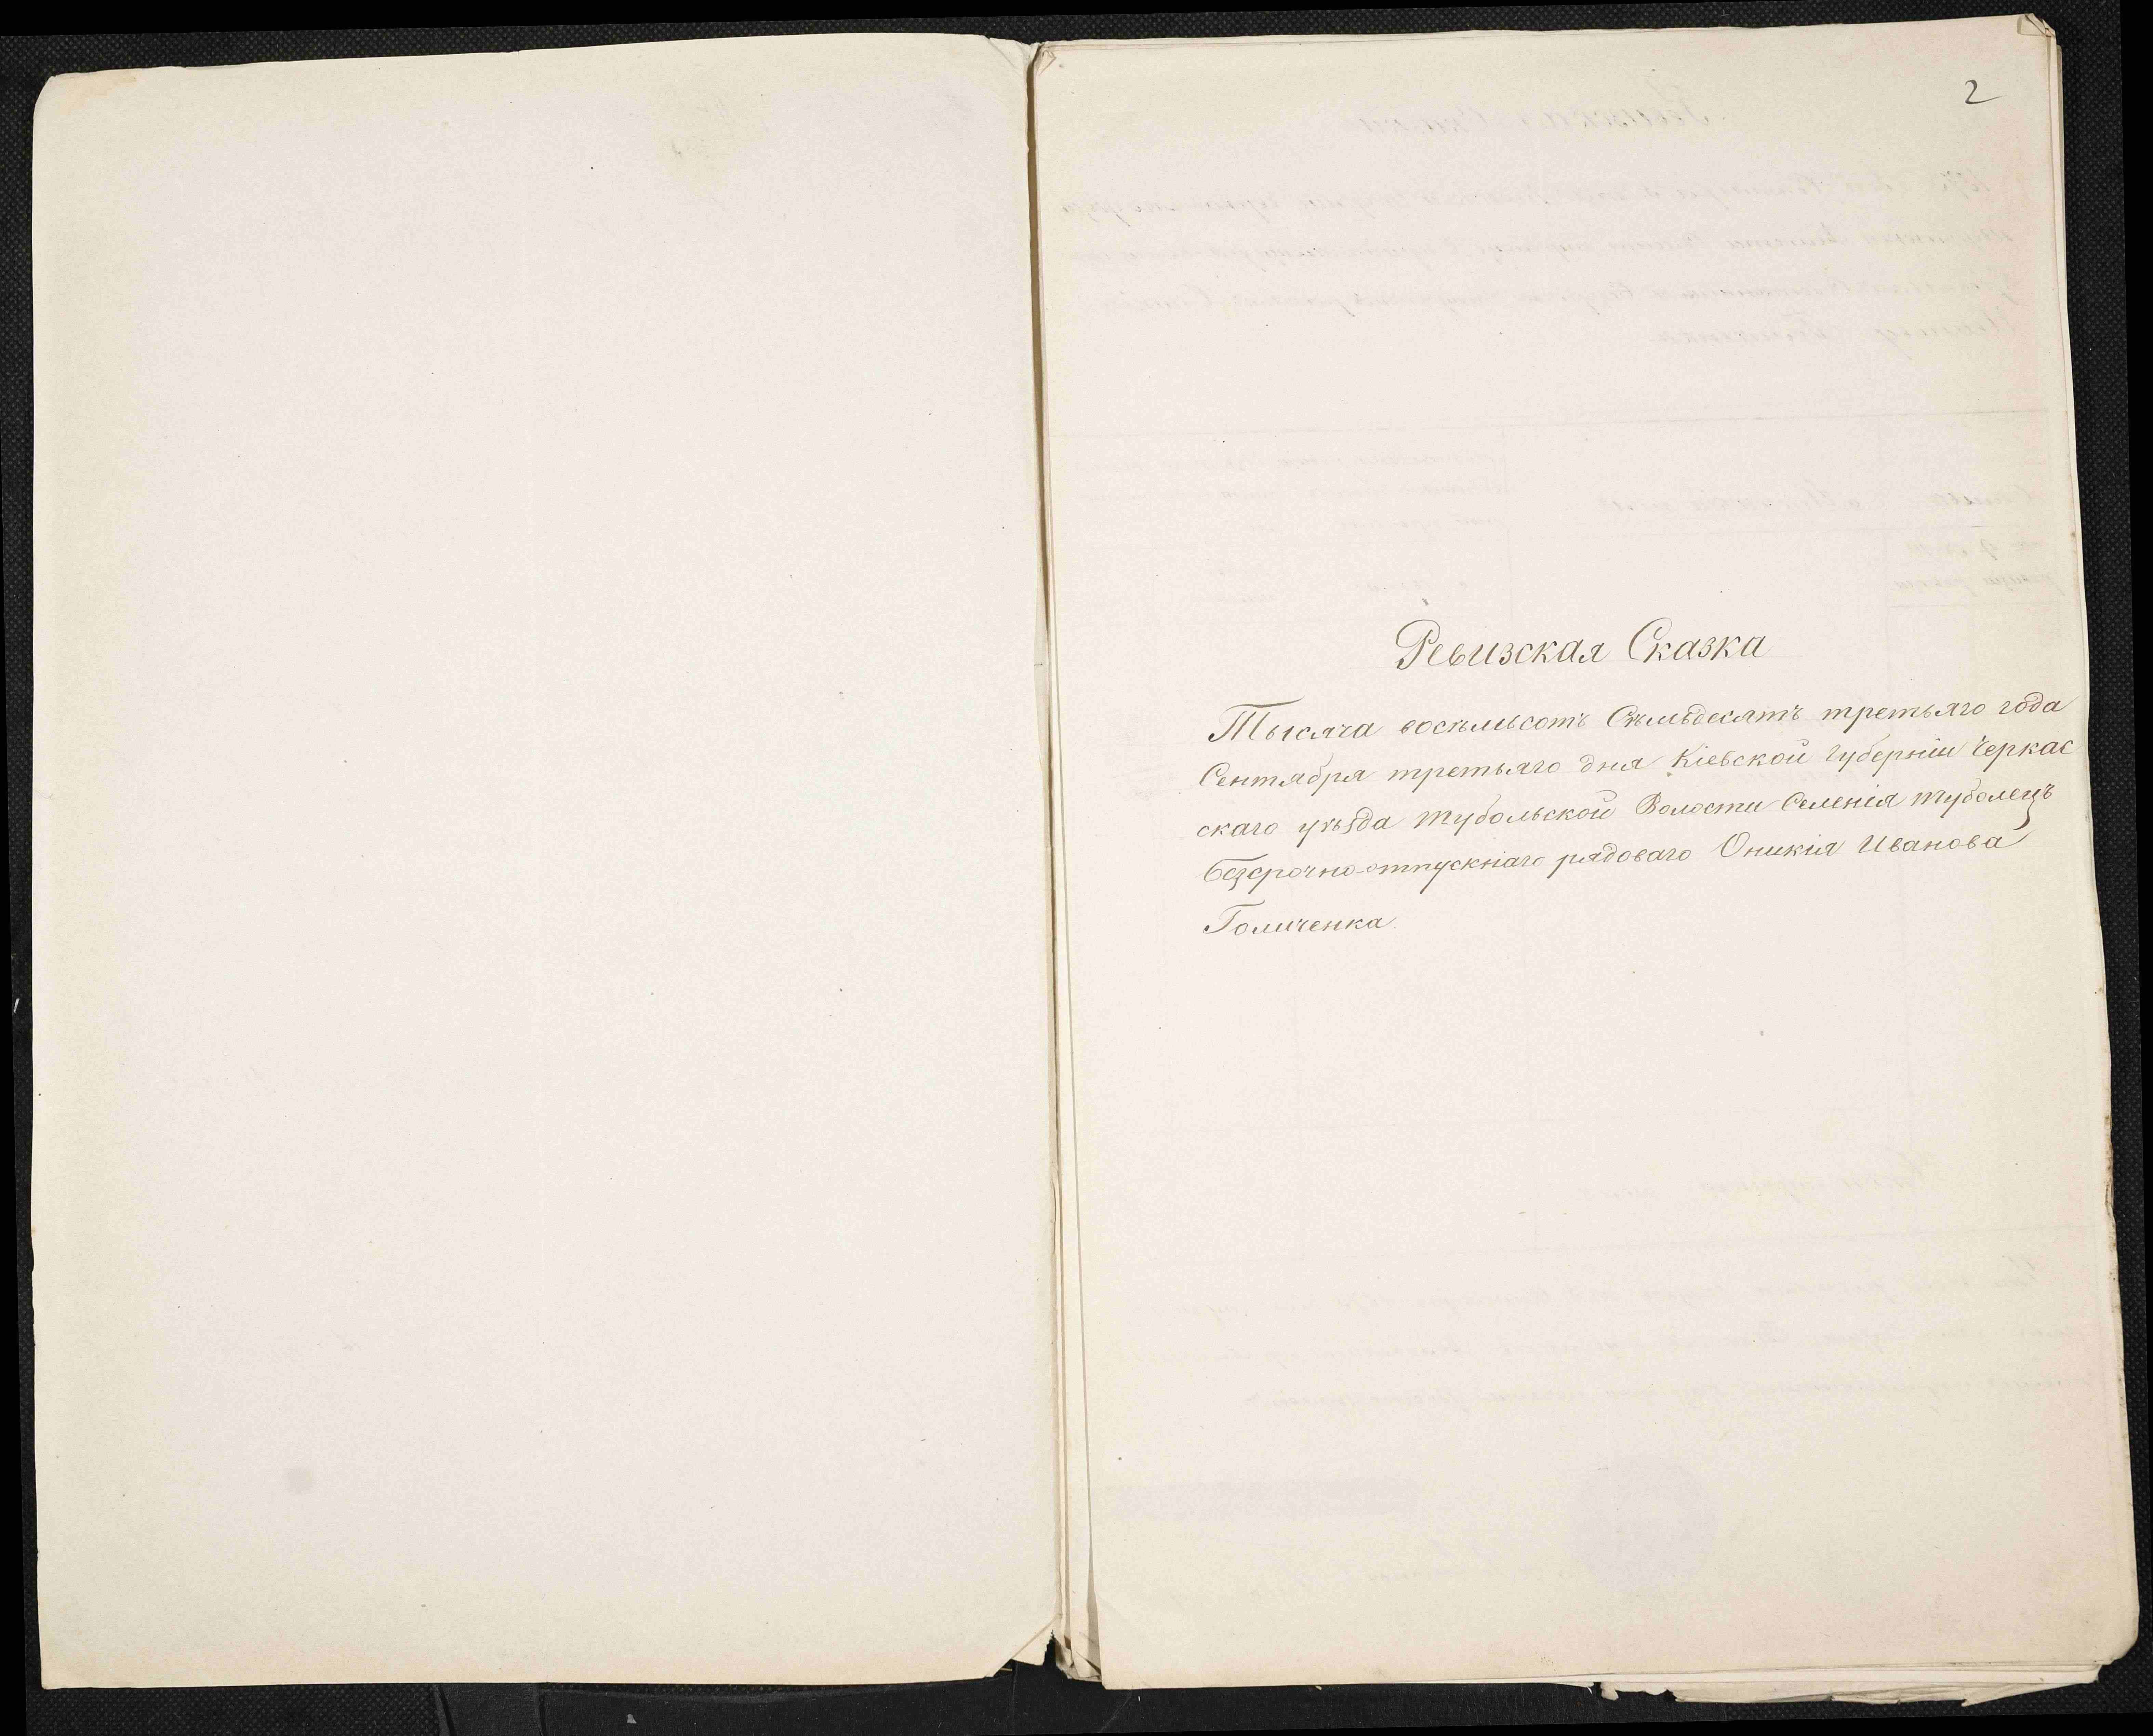 2
Ревизская Сказка
Тысяча восѣмьсотъ Сѣмьдесятъ третьяго года
Сентября третьяго дня Кіевской Губерніи Черкас
скаго уѣзда Мубольской Волости Селенія Муболецъ
безсрочно-отпускнаго рядоваго Оникія Иванова
Голиченка.